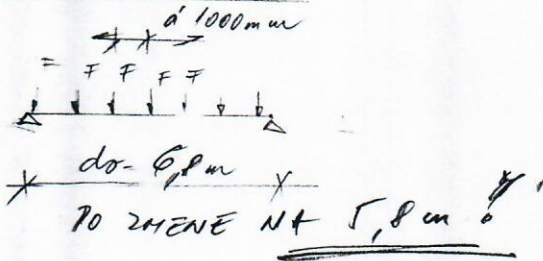 á 1000mm
F F F F F
do - 6,8 m
PO ZMENE NA 5,8 m !